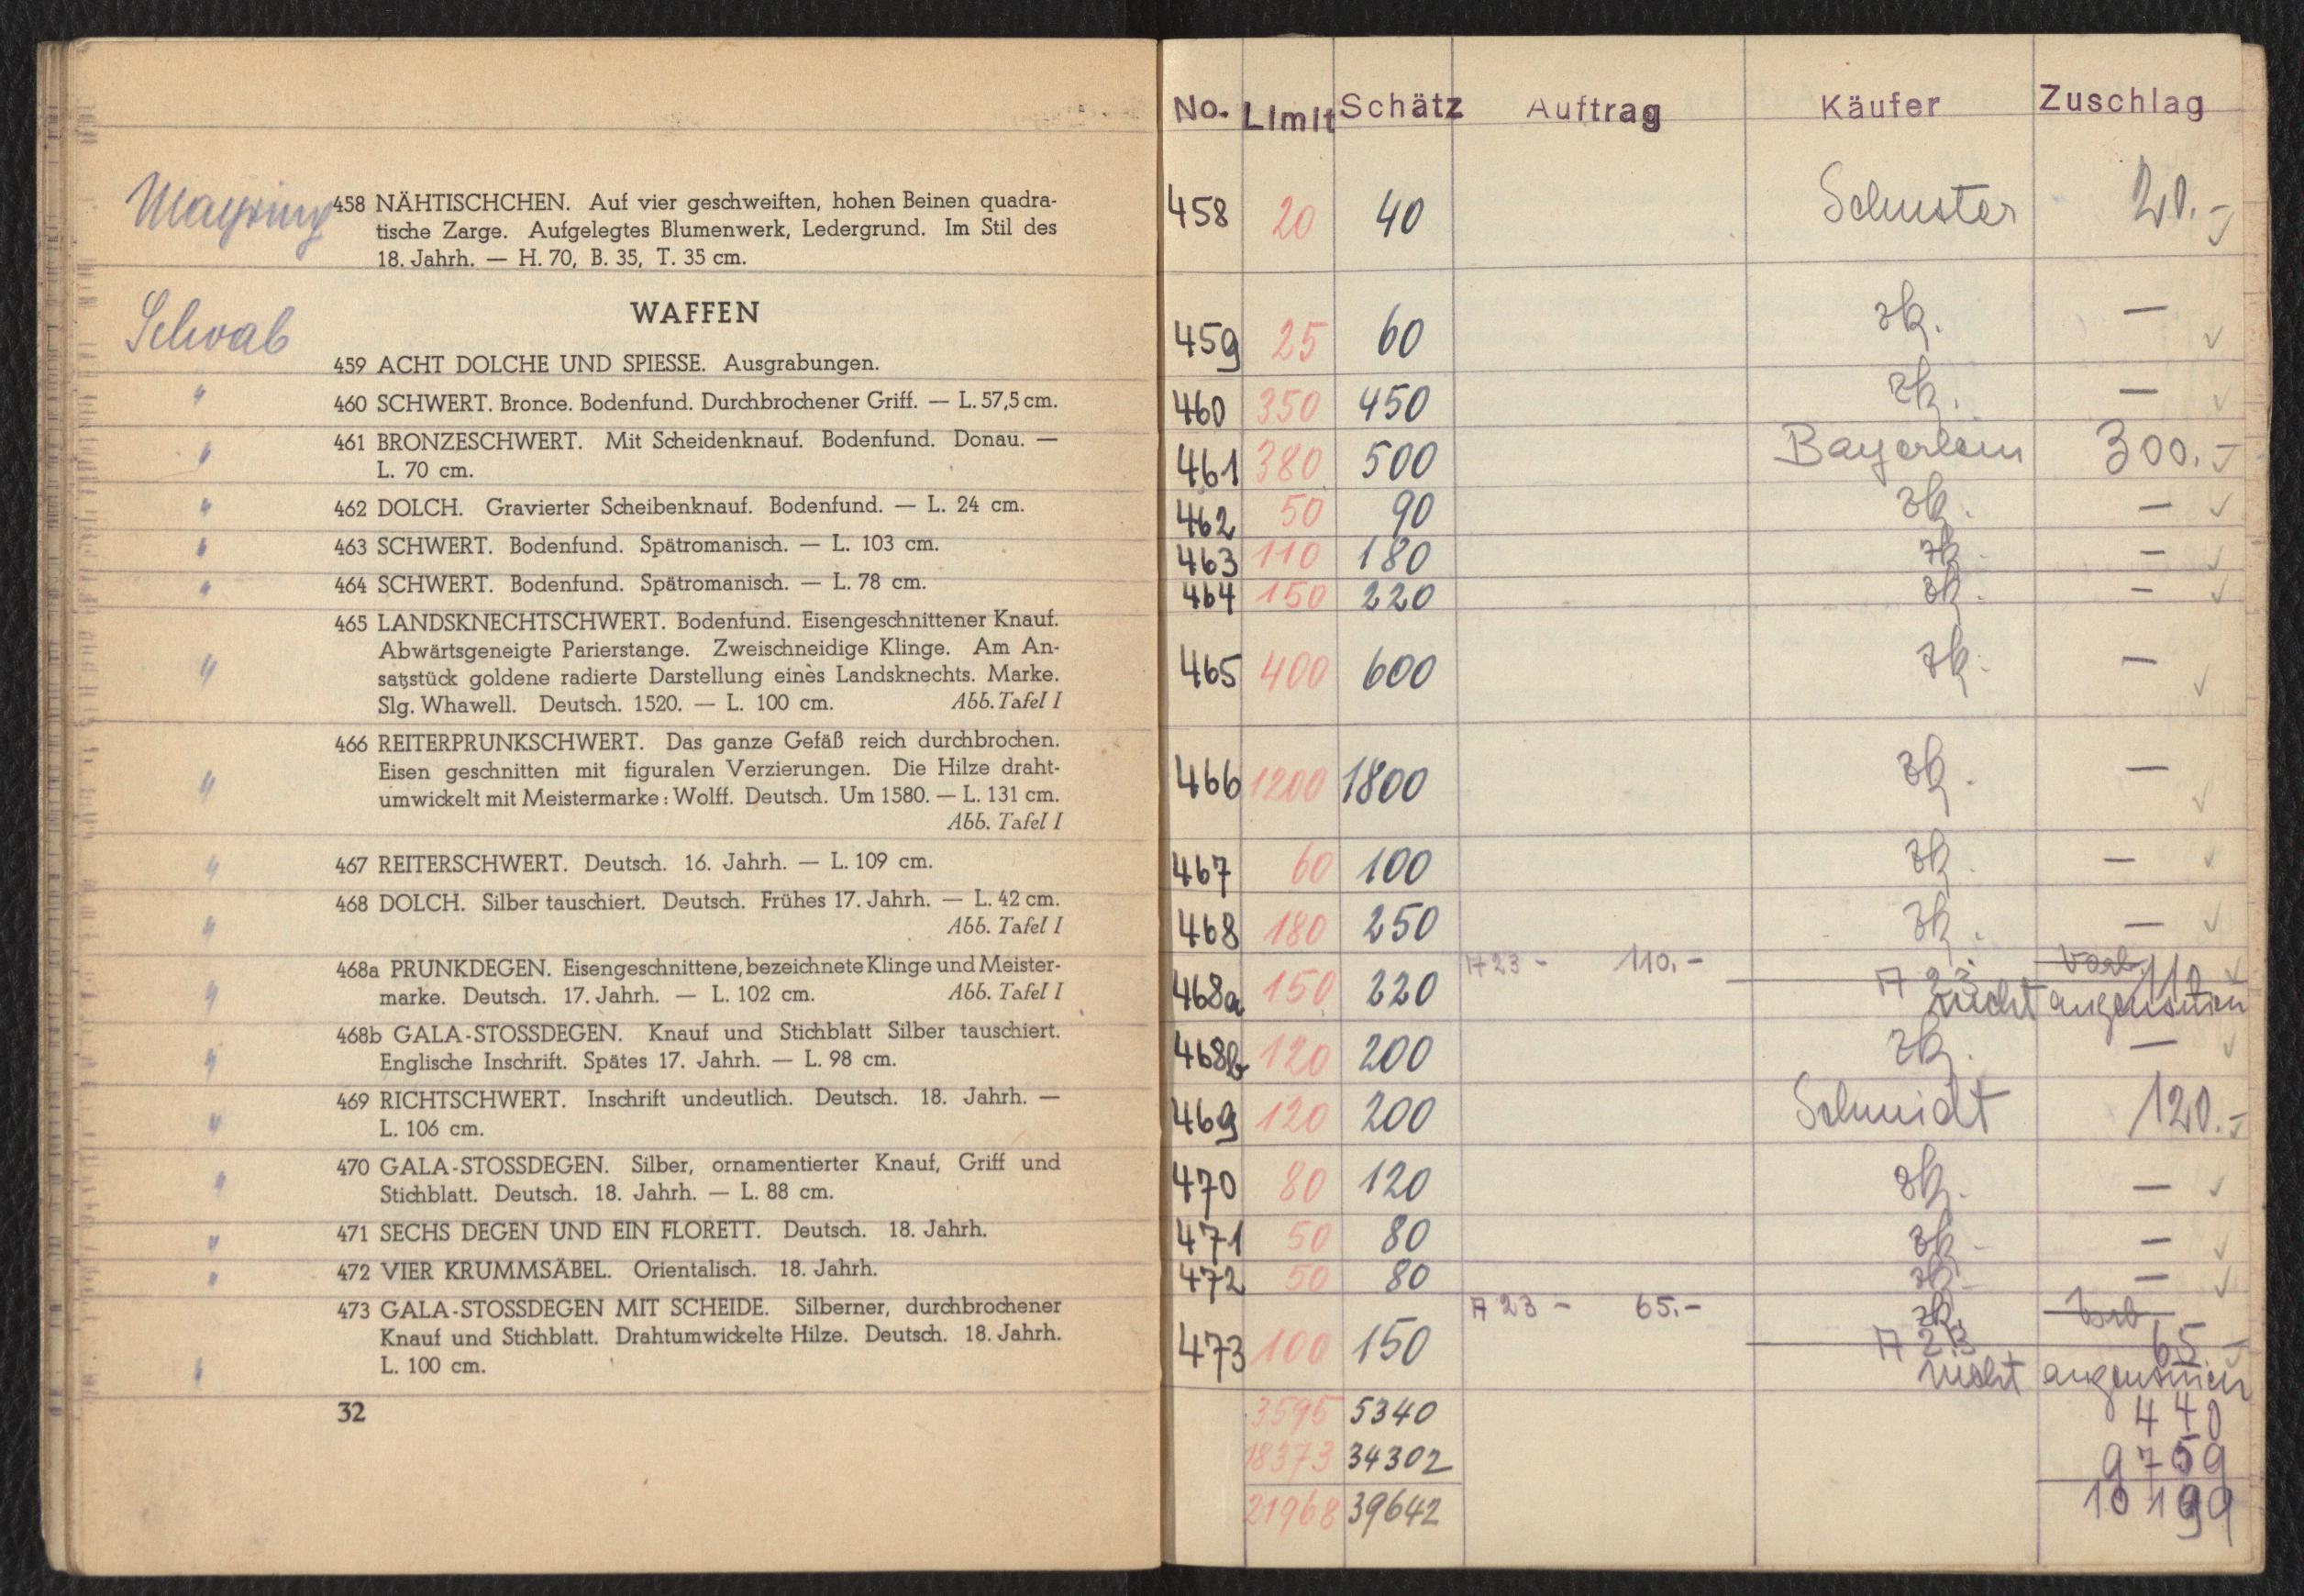 Mayring
458 NÄHTISCHCHEN. Auf vier geschweiften, hohen Beinen quadra-
tische Zarge. Aufgelegtes Blumenwerk, Ledergrund. Im Stil des
18. Jahrh. — H. 70, B. 35, T. 35 cm.
WAFFEN
Schwab
459 ACHT DOLCHE UND SPIESSE. Ausgrabungen.
" 460 SCHWERT. Bronce. Bodenfund. Durchbrochener Griff. — L. 57,5 cm.
" 461 BRONZESCHWERT. Mit Scheidenknauf. Bodenfund. Donau. —
L. 70 cm.
" 462 DOLCH. Gravierter Scheibenknauf. Bodenfund. — L. 24 cm.
" 463 SCHWERT. Bodenfund. Spätromanisch. — L. 103 cm.
" 464 SCHWERT. Bodenfund. Spätromanisch. — L. 78 cm.
465 LANDSKNECHTSCHWERT. Bodenfund. Eisengeschnittener Knauf.
Abwärtsgeneigte Parierstange. Zweischneidige Klinge. Am An-
" satzstück goldene radierte Darstellung eines Landsknechts. Marke.
Slg. Whawell. Deutsch. 1520. — L. 100 cm. Abb. Tafel I
466 REITERPRUNKSCHWERT. Das ganze Gefäß reich durchbrochen.
Eisen geschnitten mit figuralen Verzierungen. Die Hilze draht-
" umwickelt mit Meistermarke: Wolff. Deutsch. Um 1580. — L. 131 cm.
Abb. Tafel I
" 467 REITERSCHWERT. Deutsch. 16. Jahrh. — L. 109 cm.
468 DOLCH. Silber tauschiert. Deutsch. Frühes 17. Jahrh. — L. 42 cm.
" Abb. Tafel I
468a PRUNKDEGEN. Eisengeschnittene, bezeichnete Klinge und Meister-
" marke. Deutsch. 17. Jahrh. — L. 102 cm. Abb. Tafel I
468b GALA-STOSSDEGEN. Knauf und Stichblatt Silber tauschiert.
" Englische Inschrift. Spätes 17. Jahrh. — L. 98 cm.
469 RICHTSCHWERT. Inschrift undeutlich. Deutsch. 18. Jahrh. —
" L. 106 cm.
470 GALA-STOSSDEGEN. Silber, ornamentierter Knauf, Griff und
" Stichblatt. Deutsch. 18. Jahrh. — L. 88 cm.
" 471 SECHS DEGEN UND EIN FLORETT. Deutsch. 18. Jahrh.
" 472 VIER KRUMMSÄBEL. Orientalisch. 18. Jahrh.
473 GALA-STOSSDEGEN MIT SCHEIDE. Silberner, durchbrochener
Knauf und Stichblatt. Drahtumwickelte Hilze. Deutsch. 18. Jahrh.
" L. 100 cm.
32
No. Limit Schätz Auftrag Käufer Zuschlag
458 20 40 Schuster 20.-
459 25 60 zk. —
460 350 450 zk. —
461 380 500 Bayerlein 300.-
462 50 90 zk. —
463 110 180 zk. —
464 150 220 zk. —
465 400 600 zk. —
466 1200 1800 zk. —
467 60 100 zk. —
468 180 250 zk. —
468a 150 220 A 23 - 110.- A 23 110
nicht angenommen
468b 120 200 zk. —
469 120 200 Schmidt 120.-
470 80 120 zk. —
471 50 80 zk. —
472 50 80 zk. —
473 100 150 A 23 - 65.- zk. A 23 65
nicht angenommen
3595 5340 440
18373 34302 9759
21968 39642 10199